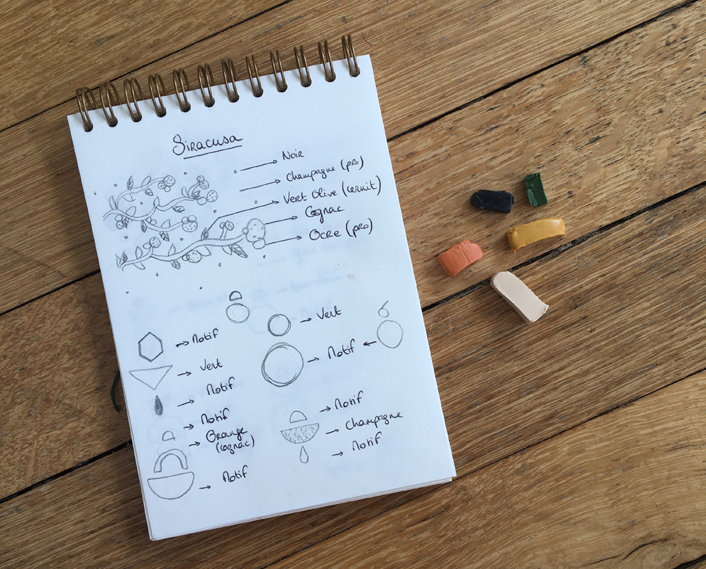 Siracusa
Noir
Champagne (pro)
Vert Olive (cernit)
Cognac
Ocre (pro)
Motif
Vert
Motif
Motif
Orange
(cognac)
Motif
Vert
Motif
Motif
Champagne
Motif